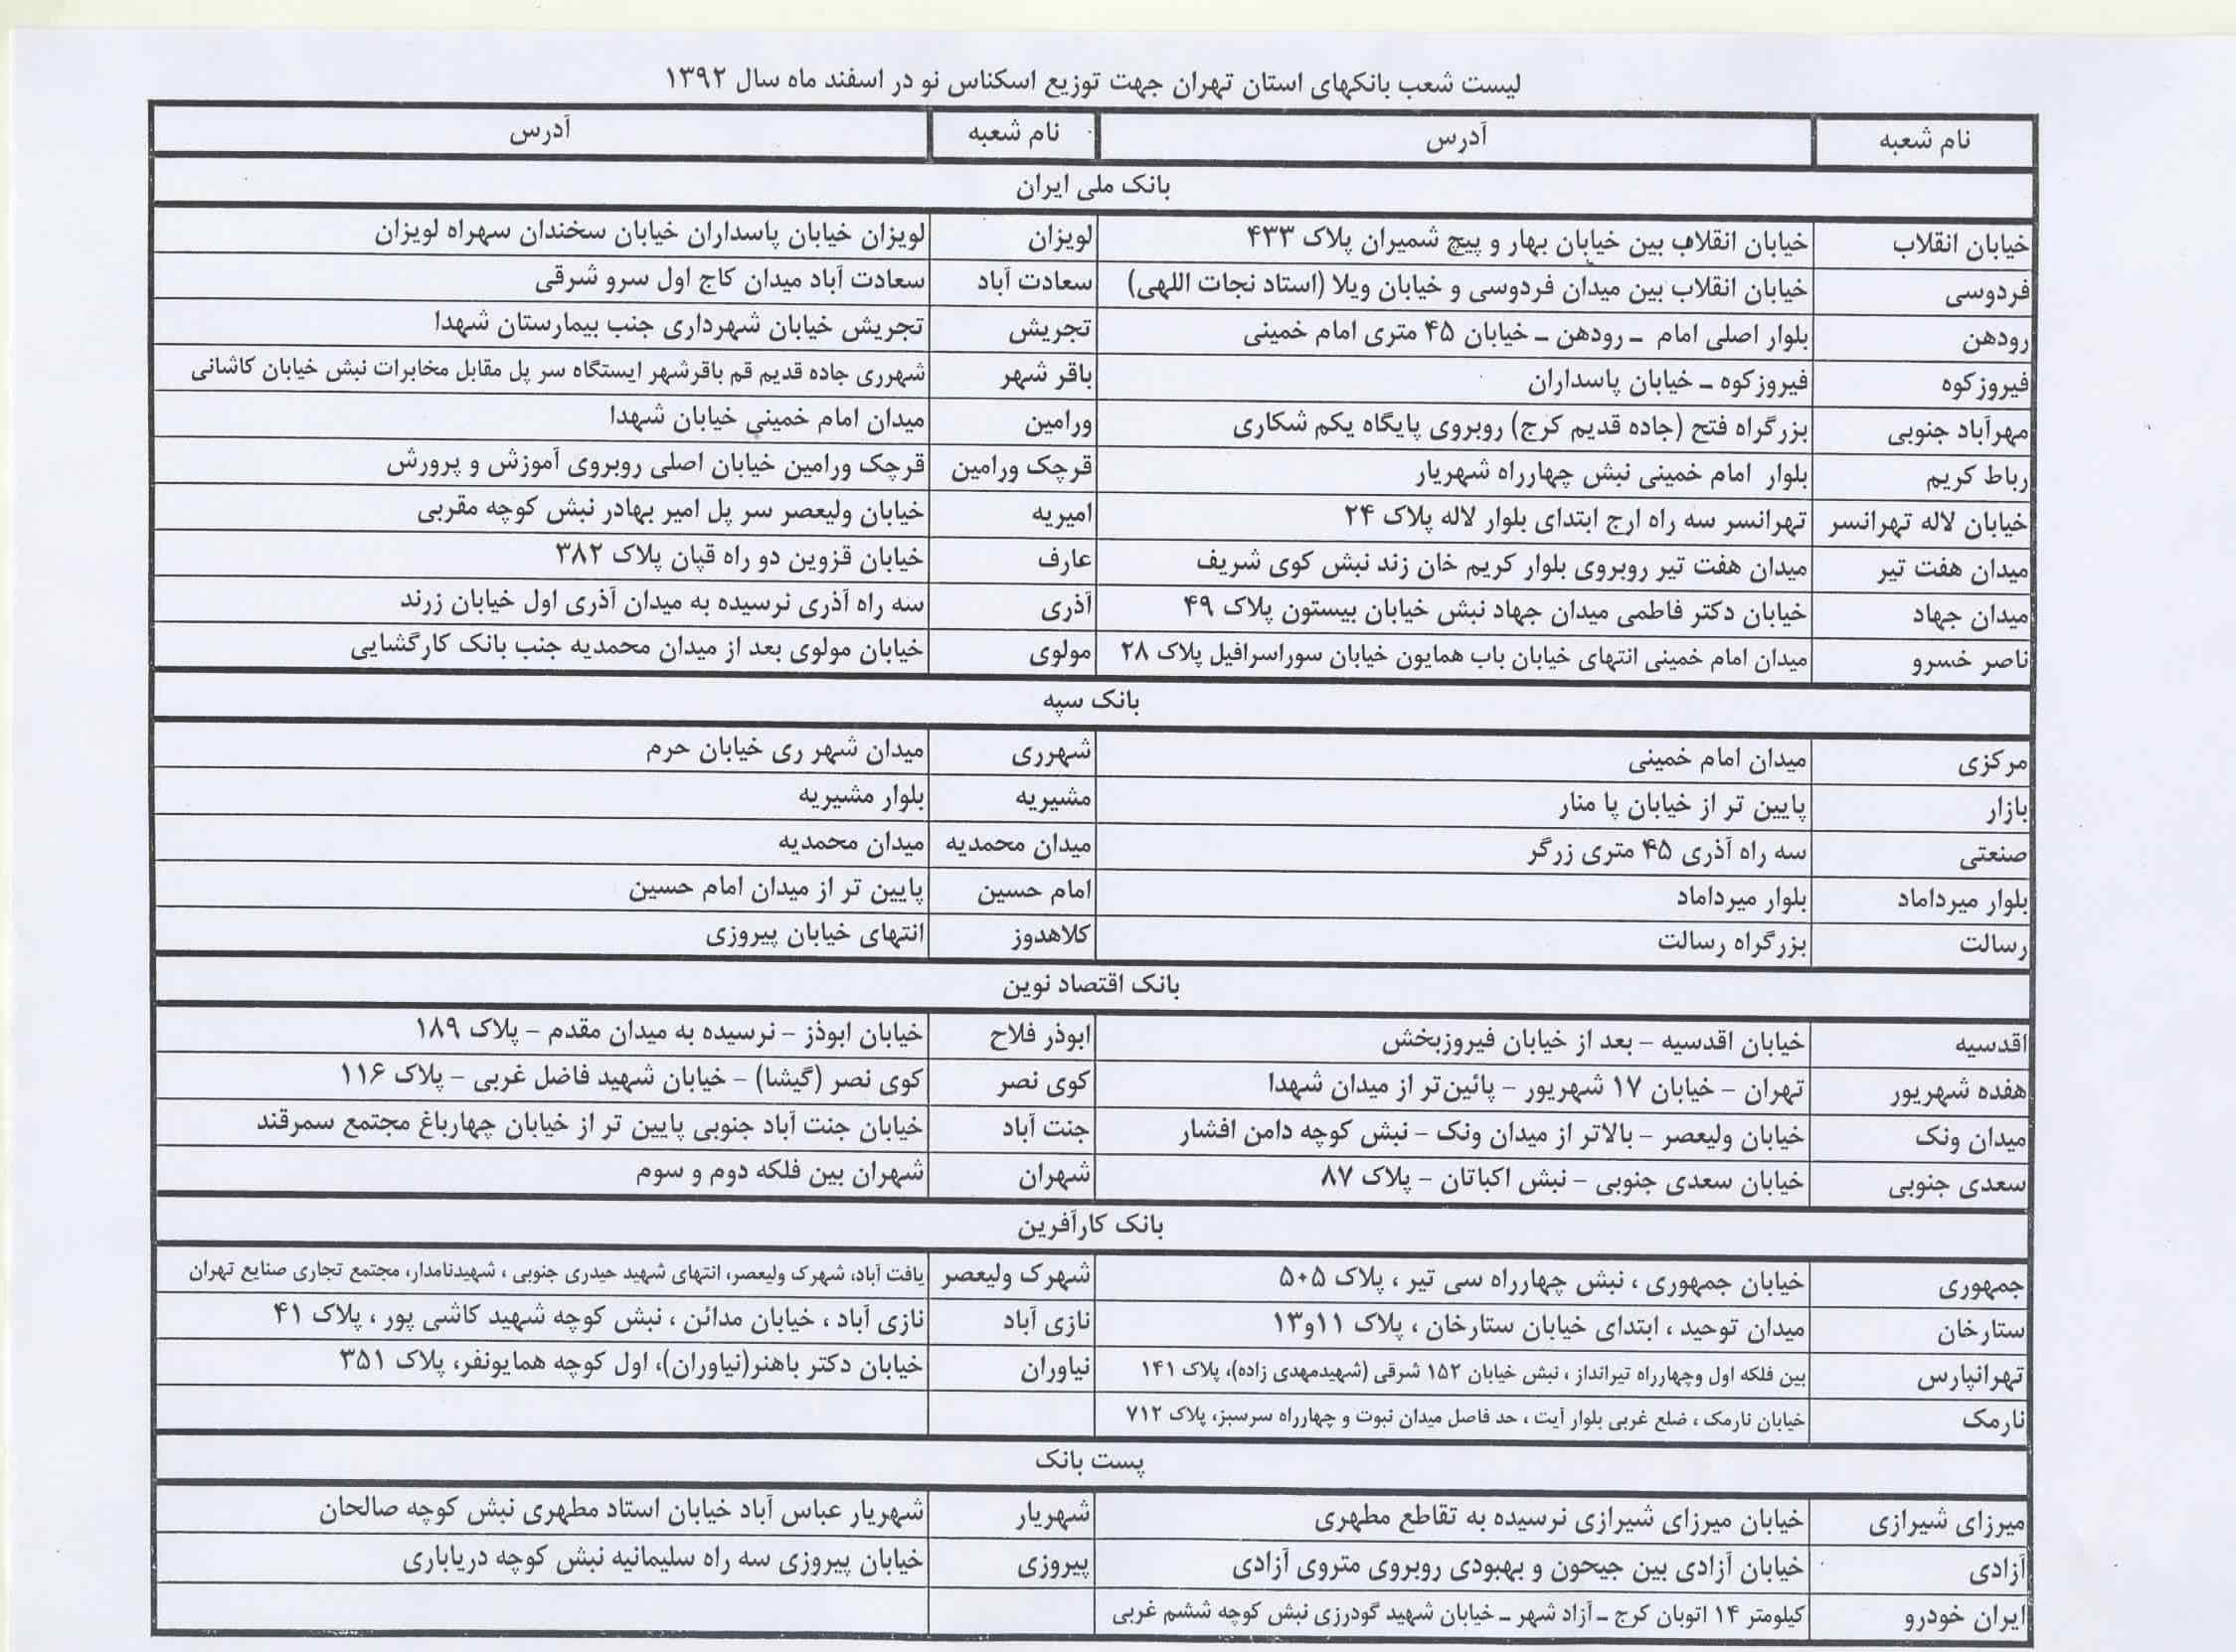 لیست شعب بانکهای استان تهران جهت توزیع اسکناس نو در اسفند ماه سال ۱۳۹۲
نام شعبه آدرس نام شعبه آدرس
بانک ملی ایران
خیابان انقلاب خیابان انقلاب بین خیابان بهار و پیچ شمیران پلاک ۴۳۳ لویزان لویزان خیابان پاسداران خیابان سخندان سهراه لویزان
فردوسی خیابان انقلاب بین میدان فردوسی و خیابان ویلا (استاد نجات اللهی) سعادت آباد سعادت آباد میدان کاج اول سرو شرقی
رودهن بلوار اصلی امام – رودهن – خیابان ۴۵ متری امام خمینی تجریش تجریش خیابان شهرداری جنب بیمارستان شهدا
فیروزکوه فیروزکوه – خیابان پاسداران باقر شهر شهرری جاده قدیم قم باقرشهر ایستگاه سر پل مقابل مخابرات نبش خیابان کاشانی
مهرآباد جنوبی بزرگراه فتح (جاده قدیم کرج) روبروی پایگاه یکم شکاری ورامین میدان امام خمینی خیابان شهدا
رباط کریم بلوار امام خمینی نبش چهارراه شهریار قرچک ورامین قرچک ورامین خیابان اصلی روبروی آموزش و پرورش
خیابان لاله تهرانسر تهرانسر سه راه ارج ابتدای بلوار لاله پلاک ۲۴ امیریه خیابان ولیعصر سر پل امیر بهادر نبش کوچه مقربی
میدان هفت تیر میدان هفت تیر روبروی بلوار کریم خان زند نبش کوی شریف عارف خیابان قزوین دو راه قپان پلاک ۳۸۲
میدان جهاد خیابان دکتر فاطمی میدان جهاد نبش خیابان بیستون پلاک ۴۹ آذری سه راه آذری نرسیده به میدان آذری اول خیابان زرند
ناصر خسرو میدان امام خمینی انتهای خیابان باب همایون خیابان سوراسرافیل پلاک ۲۸ مولوی خیابان مولوی بعد از میدان محمدیه جنب بانک کارگشایی
بانک سپه
مرکزی میدان امام خمینی شهرری میدان شهر ری خیابان حرم
بازار پایین تر از خیابان پا منار مشیریه بلوار مشیریه
صنعتی سه راه آذری ۴۵ متری زرگر میدان محمدیه میدان محمدیه
بلوار میرداماد بلوار میرداماد امام حسین پایین تر از میدان امام حسین
رسالت بزرگراه رسالت کلاهدوز انتهای خیابان پیروزی
بانک اقتصاد نوین
اقدسیه خیابان اقدسیه – بعد از خیابان فیروزبخش ابوذر فلاح خیابان ابوذز – نرسیده به میدان مقدم – پلاک ۱۸۹
هفده شهریور تهران – خیابان ۱۷ شهریور – پائین‌تر از میدان شهدا کوی نصر کوی نصر (گیشا) – خیابان شهید فاضل غربی – پلاک ۱۱۶
میدان ونک خیابان ولیعصر – بالاتر از میدان ونک – نبش کوچه دامن افشار جنت آباد خیابان جنت آباد جنوبی پایین تر از خیابان چهارباغ مجتمع سمرقند
سعدی جنوبی خیابان سعدی جنوبی – نبش اکباتان – پلاک ۸۷ شهران شهران بین فلکه دوم و سوم
بانک کارآفرین
جمهوری خیابان جمهوری ، نبش چهارراه سی تیر ، پلاک ۵۰۵ شهرک ولیعصر یافت آباد، شهرک ولیعصر، انتهای شهید حیدری جنوبی ، شهیدنامدار، مجتمع تجاری صنایع تهران
ستارخان میدان توحید ، ابتدای خیابان ستارخان ، پلاک ۱۱و۱۳ نازی آباد نازی آباد ، خیابان مدائن ، نبش کوچه شهید کاشی پور ، پلاک ۴۱
تهرانپارس بین فلکه اول وچهارراه تیرانداز ، نبش خیابان ۱۵۲ شرقی (شهیدمهدی زاده)، پلاک ۱۴۱ نیاوران خیابان دکتر باهنر(نیاوران)، اول کوچه همایونفر، پلاک ۳۵۱
نارمک خیابان نارمک ، ضلع غربی بلوار آیت ، حد فاصل میدان نبوت و چهارراه سرسبز، پلاک ۷۱۲
پست بانک
میرزای شیرازی خیابان میرزای شیرازی نرسیده به تقاطع مطهری شهریار شهریار عباس آباد خیابان استاد مطهری نبش کوچه صالحان
آزادی خیابان آزادی بین جیحون و بهبودی روبروی متروی آزادی پیروزی خیابان پیروزی سه راه سلیمانیه نبش کوچه دریاباری
ایران خودرو کیلومتر ۱۴ اتوبان کرج – آزاد شهر – خیابان شهید گودرزی نبش کوچه ششم غربی